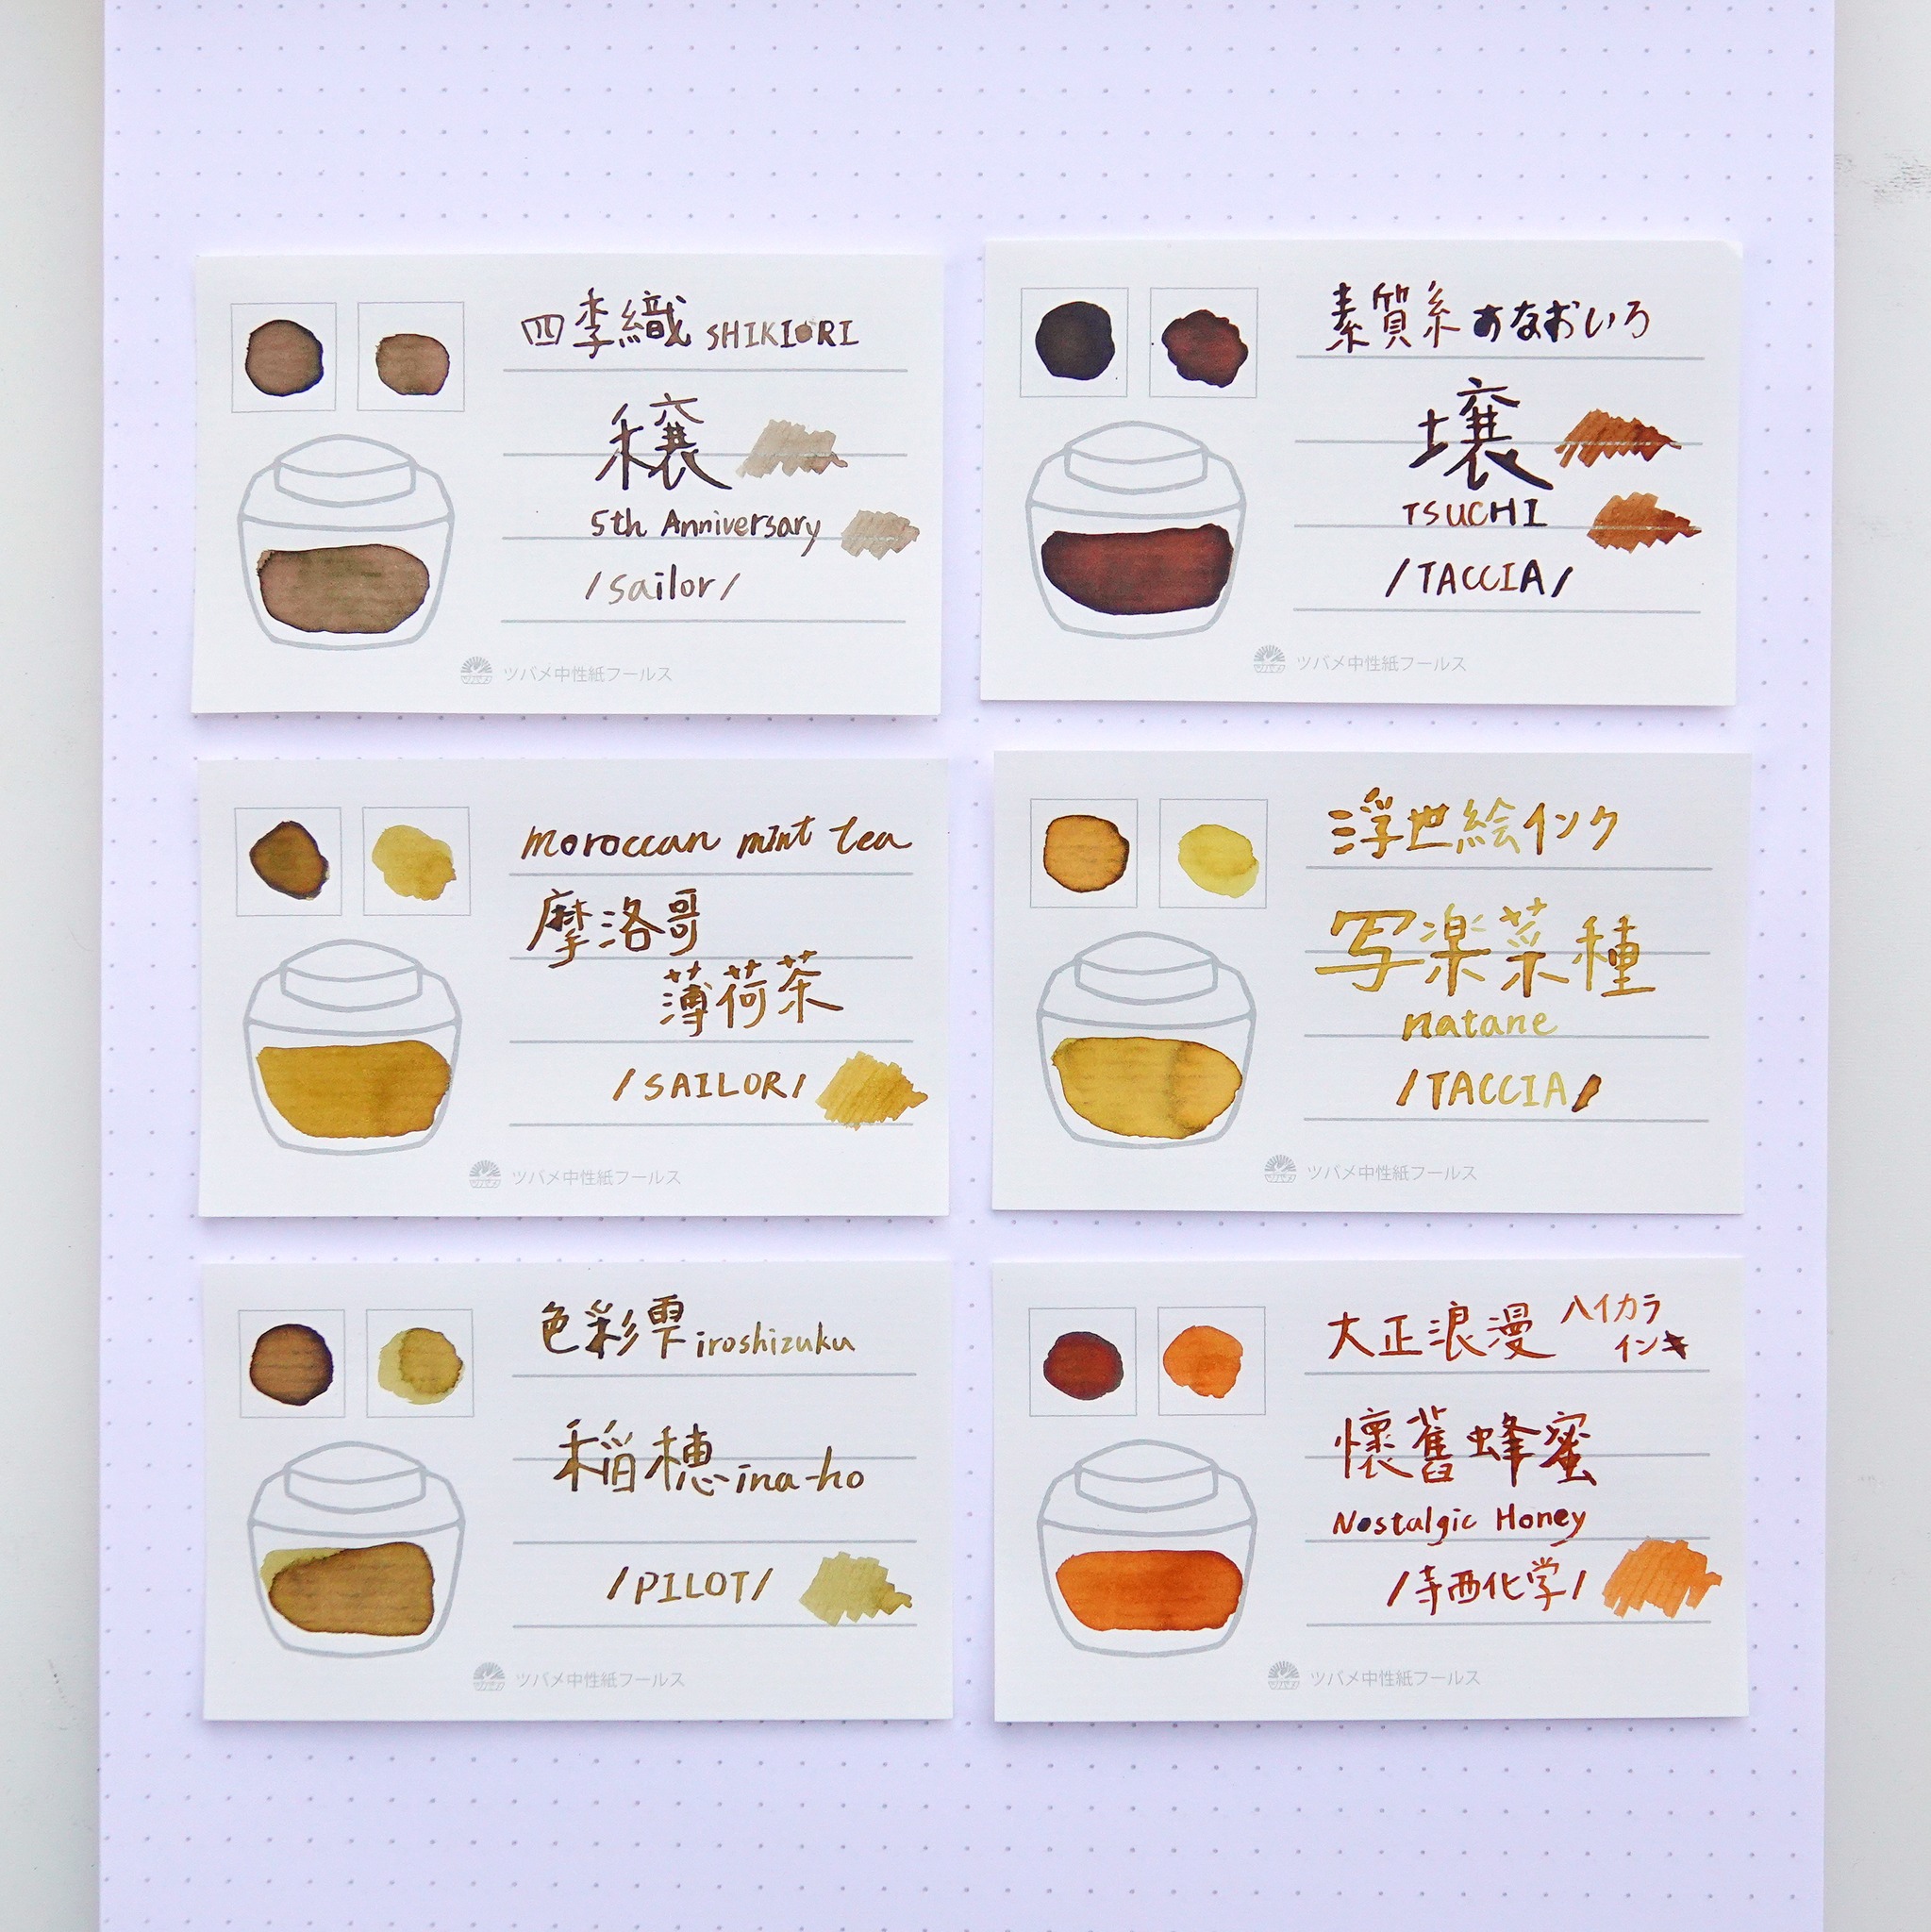 四季織 SHIKIORI
穣
5th Anniversary
/sailor/
ツバメ中性紙フールス
素質系 すなおいろ
壌
TSUCHI
/TACCIA/
ツバメ中性紙フールス
moroccan mint tea
摩洛哥
薄荷茶
/SAILOR/
ツバメ中性紙フールス
浮世絵インク
写楽菜種
natane
/TACCIA/
ツバメ中性紙フールス
色彩雫 iroshizuku
稲穂 ina-ho
/PILOT/
ツバメ中性紙フールス
大正浪漫 ハイカラ
インキ
懷舊蜂蜜
Nostalgic Honey
/寺西化学/
ツバメ中性紙フールス